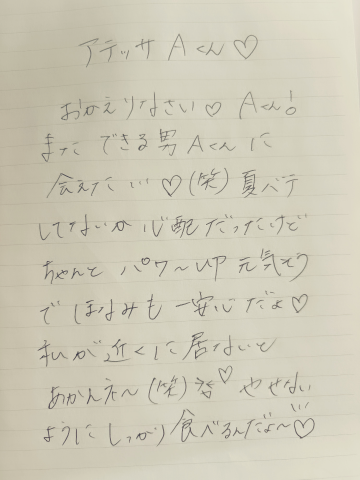 アテッサ Aくん♡
おかえりなさい♡ Aくん!
また できる男 Aくんに
会えた!!! ♡(笑) 夏バテ
してないか 心配だったけど
ちゃんと パワ〜UP 元気そう
で ほなみも 一安心だよ♡
私が 近くに 居ないと
あかんえ〜(笑)♡ やせない
ように しっかり 食べるんだよ〜♡